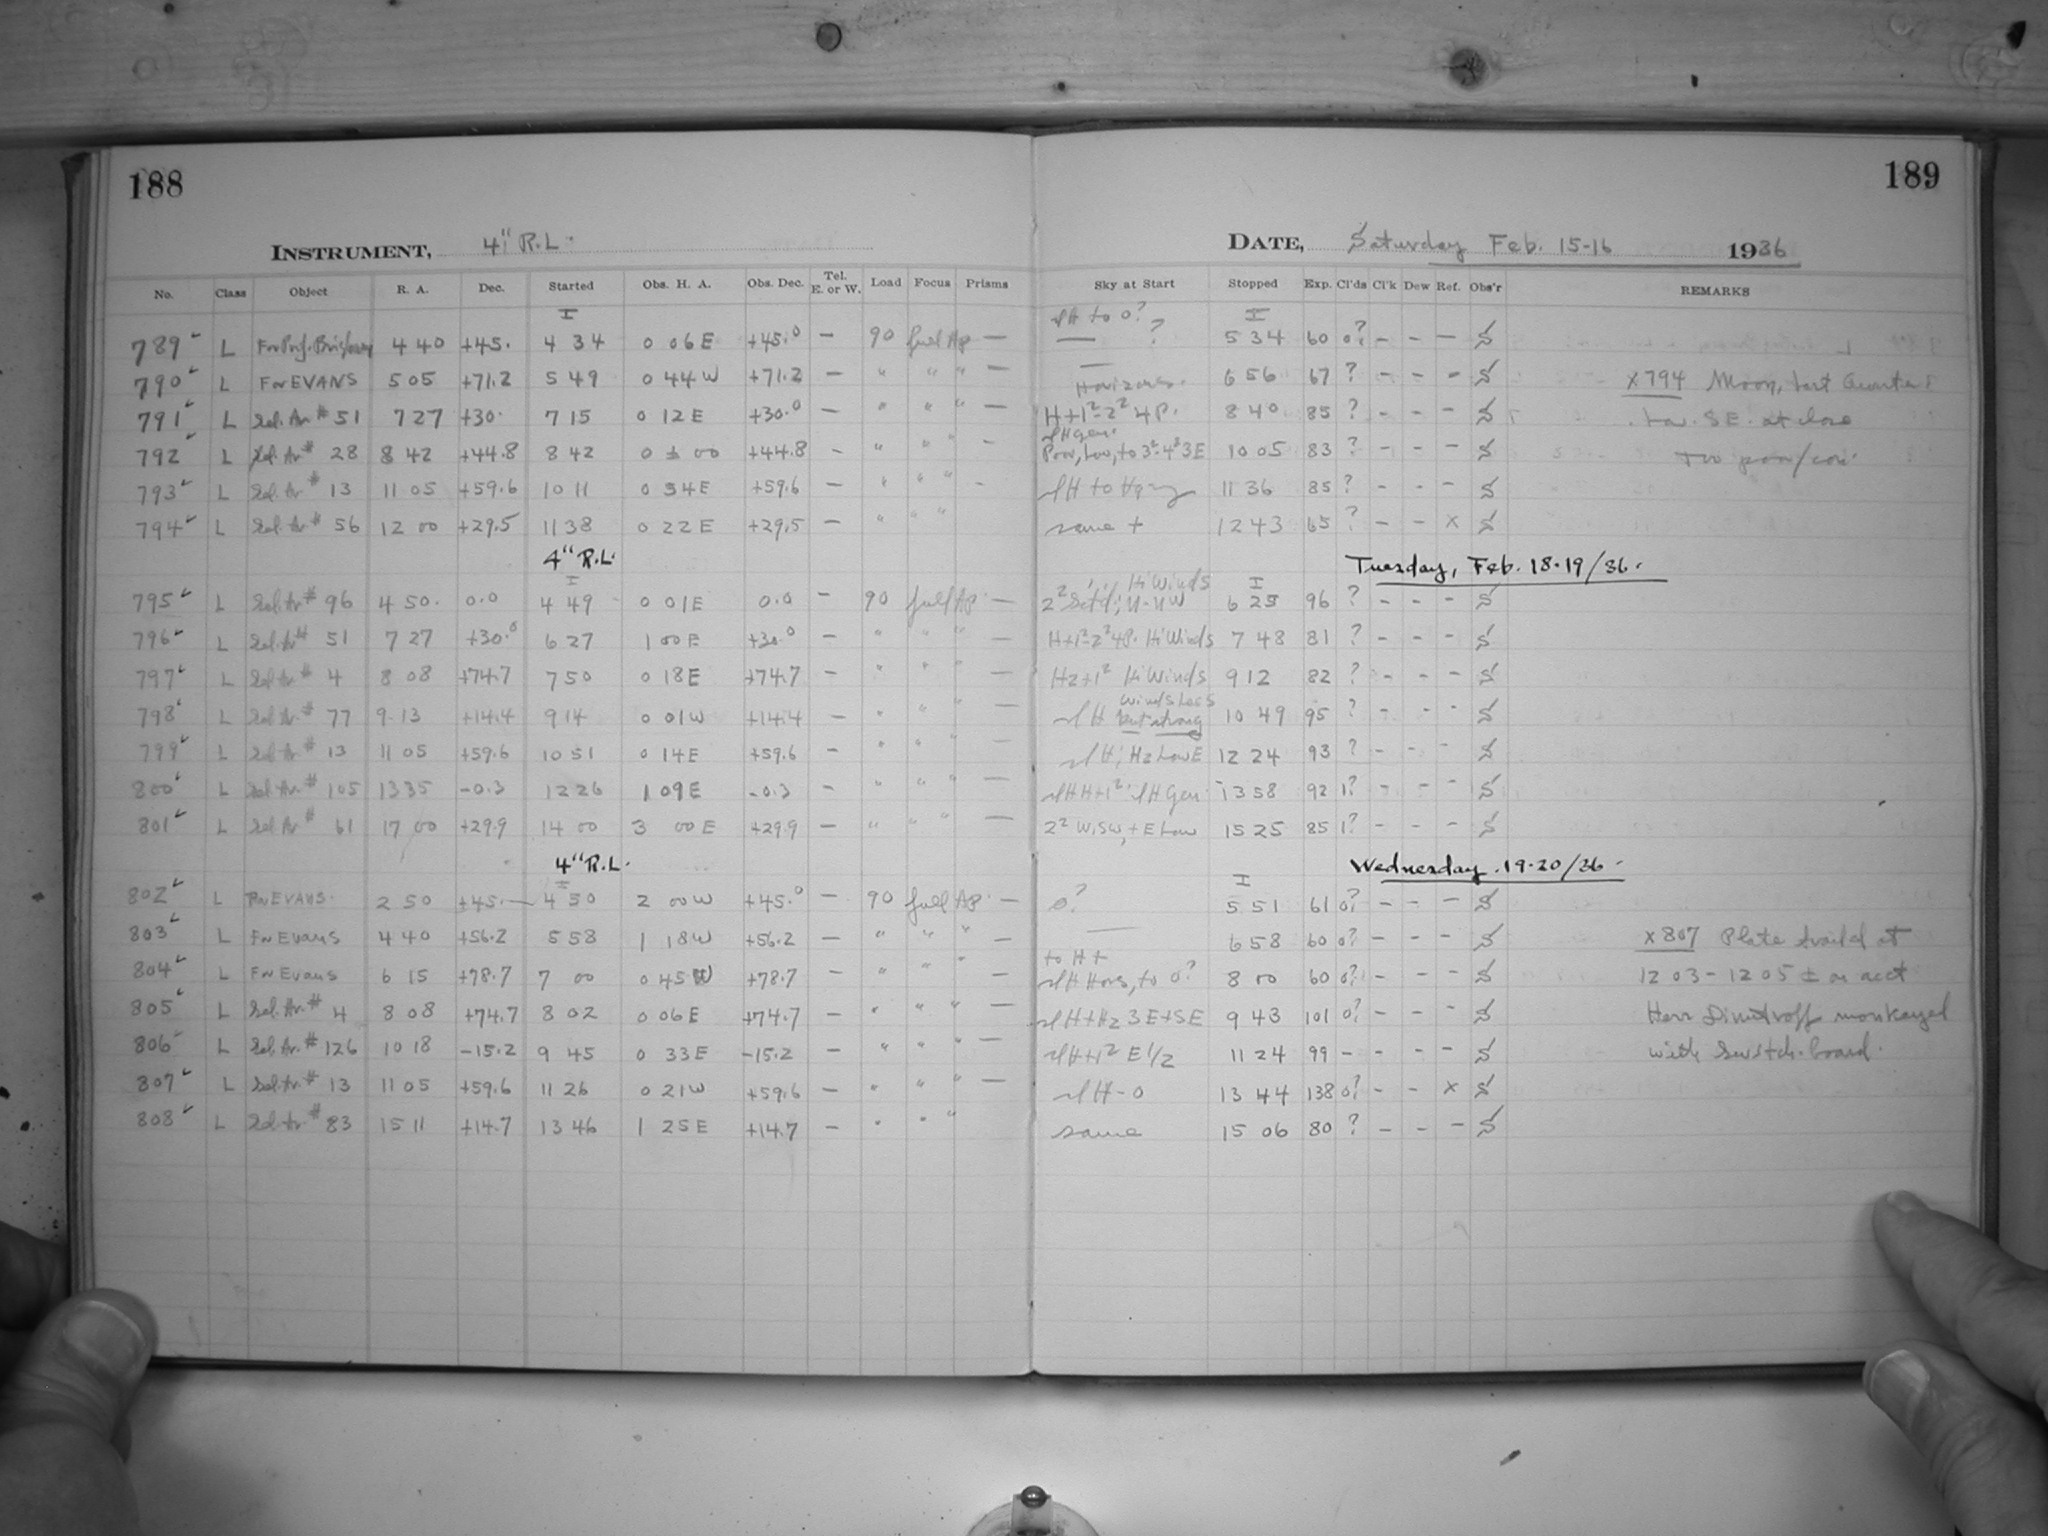 188
189
INSTRUMENT, 4" R.L.
DATE, Saturday Feb. 15-16 1936
No. Class Object R. A. Dec. Started Obs. H. A. Obs. Dec. Tel. E. or W. Load Focus Prisms Sky at Start Stopped Exp. Cl'ds Cl'k Dew Ref. Obs'r REMARKS
789 L For Prof. 4 40 +45. 4 34 0 06 E +45.0 — 90 full Ap — to 0? — ? 5 34 60 0? - - - S
790 L For EVANS 5 05 +71.2 5 49 0 44 W +71.2 — " " " — — 6 56 67 ? - - - S x794 Moon, Last Quarter
791 L Sel. Ar # 51 7 27 +30. 7 15 0 12 E +30.0 — " " " — Horizons. H+1²-2² 4P. 8 40 85 ? - - - S Low SE. at close
792 L Sel. Ar # 28 8 42 +44.8 8 42 0 ± 00 +44.8 - " " " - Poor, Low, to 3²-4³ 3E 10 05 83 ? - - - S
793 L Sel. Ar # 13 11 05 +59.6 10 11 0 34 E +59.6 — " " " - 11 36 85 ? - - - S
794 L Sel. Ar # 56 12 00 +29.5 11 38 0 22 E +29.5 — " " " same + 12 43 65 ? - - x S
4" R.L. Tuesday, Feb. 18-19/36.
795 L Sel. Ar # 96 4 50. 0.0 4 49 0 01 E 0.0 — 90 full Ap — Hi Winds 6 25 96 ? - - - S
796 L Sel. Ar # 51 7 27 +30.0 6 27 1 00 E +30.0 — " " " — H+1²-2² 4P. Hi Winds 7 48 81 ? - - - S
797 L Sel. Ar # 4 8 08 +74.7 7 50 0 18 E +74.7 — " " " — Hz+1² Hi Winds 9 12 82 ? - - - S
798 L Sel. Ar. # 77 9 13 +14.4 9 14 0 01 W +14.4 — " " " — winds less but strong 10 49 95 ? - - - S
799 L Sel. Ar # 13 11 05 +59.6 10 51 0 14 E +59.6 " " " — Hz Low E 12 24 93 ? - - - S
800 L Sel. Ar. # 105 13 35 -0.3 12 26 1 09 E -0.3 — " " " — 13 58 92 1? - - - S
801 L Sel Ar # 61 17 00 +29.9 14 00 3 00 E +29.9 — " " " — 2² W, SW, + E Low 15 25 85 1? - - - S
4" R.L. Wednesday. 19-20/36.
802 L For EVANS. 2 50 +45. 4 50 2 00 W +45.0 — 90 full Ap. — 0? 5 51 61 0? - - - S
803 L For Evans 4 40 +56.2 5 58 1 18 W +56.2 — " " " — — 6 58 60 0? - - - S x807 Plate trail'd at
804 L For Evans 6 15 +78.7 7 00 0 45 W +78.7 — " " " — to H+ Hors, to 0? 8 00 60 0? - - - S 12 03 - 12 05 ± on acct
805 L Sel. Ar. # 4 8 08 +74.7 8 02 0 06 E +74.7 — " " " — H+Hz 3E+SE 9 43 101 0? - - - S Herr Dimitroff monkeyed
806 L Sel. Ar. # 126 10 18 -15.2 9 45 0 33 E -15.2 — " " " — H+1² E 1/2 11 24 99 - - - - S with Switch-board.
807 L Sel. Ar. # 13 11 05 +59.6 11 26 0 21 W +59.6 — " " " — H-0 13 44 138 0? - - x S
808 L Sel. Ar. # 83 15 11 +14.7 13 46 1 25 E +14.7 — " " " same 15 06 80 ? - - - S